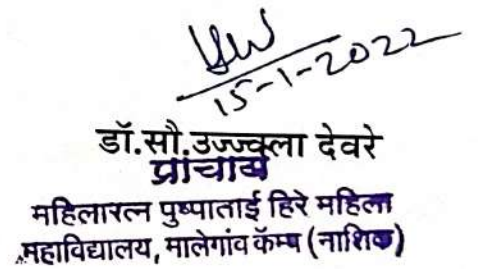 15-1-2022
डॉ.सौ.उज्ज्वला देवरे
प्राचार्य
महिलारत्न पुष्पाताई हिरे महिला
महाविद्यालय, मालेगांव कॅम्प (नाशिक)